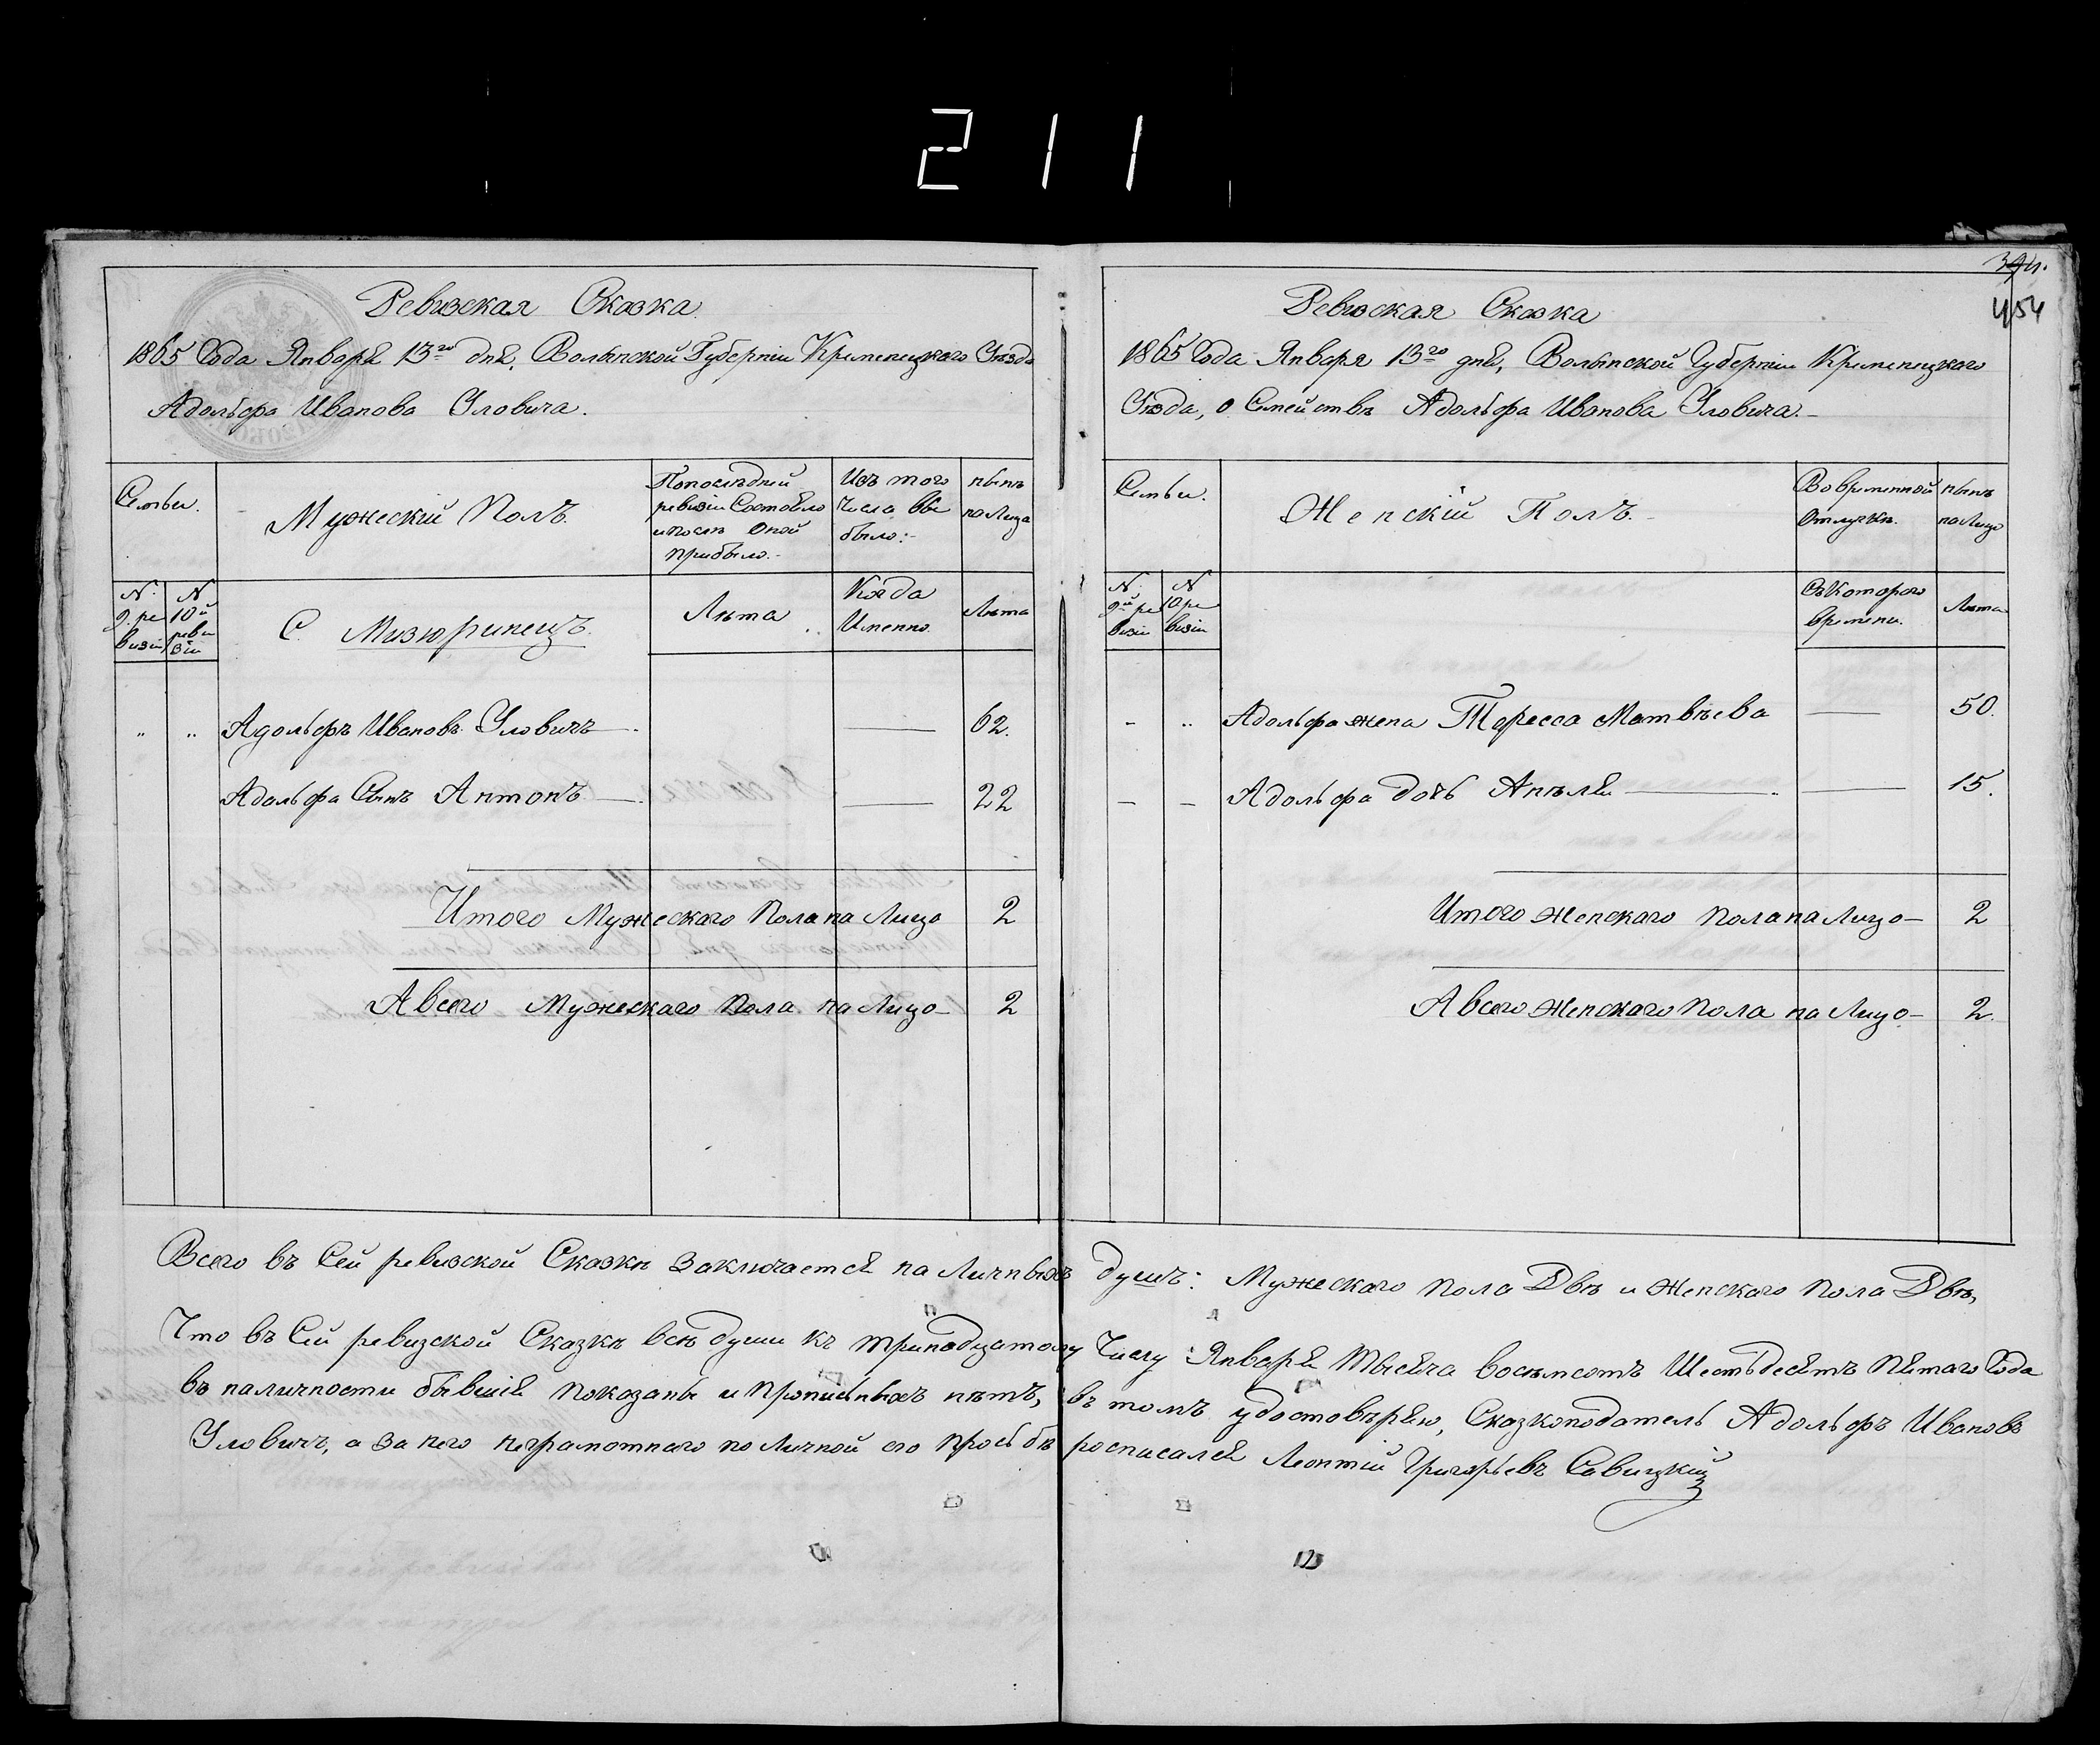 211
Ревизская Сказка.
1865 Года Января 13го дня, Волынской Губерніи Кременецкаго Уѣзда
Адольфа Иванова Уловича.
Семьи.
Мужескій Полъ.
По последней
ревизіи Состояло
и послѣ Оной
прибыло.
Изъ того
Числа вы
было:
нынѣ
на Лицо
N. 9. ре
визіи
N 10й
реви
зіи
С. Мизюринецъ.
Лѣта
Когда
Именно.
Лѣта
Адольфъ Ивановъ Уловичъ — 62.
Адольфа Сынъ Антонъ — 22
Итого Мужескаго Пола на Лицо 2
А всего Мужескаго Пола на Лицо 2
454
Ревизская Сказка
1865 Года Января 13го дня, Волынской Губерніи Кременецкаго
Уѣзда, о Семействѣ Адольфа Иванова Уловича.
Семьи.
Женскій Полъ.
Во временной
Отлучкѣ.
нынѣ
на Лицо
N 9й ре
визіи
N 10 ре
визіи
Съ Котораго
времени.
Лѣта
Адольфа жена Тересса Матвѣева — 50.
Адольфа дочь Анѣля — 15.
Итого Женскаго Пола на Лицо 2
А всего Женскаго Пола на Лицо 2.
Всего въ Сей ревизской Сказкѣ Заключается на Личныхъ душъ: Мужескаго пола Двѣ и Женскаго пола Двѣ,
Что въ Сей ревизской Сказкѣ всѣ души къ тринадцатому Числу Января Тысяча восѣмсотъ Шестьдесятъ пятаго Года
въ наличности бывшія показаны и прописныхъ нѣтъ, въ томъ удостовѣряю, Сказкоподатель Адольфъ Ивановъ
Уловичъ, а за него неграмотнаго по Личной его просьбѣ росписался Леонтій Григорьевъ Савицкій